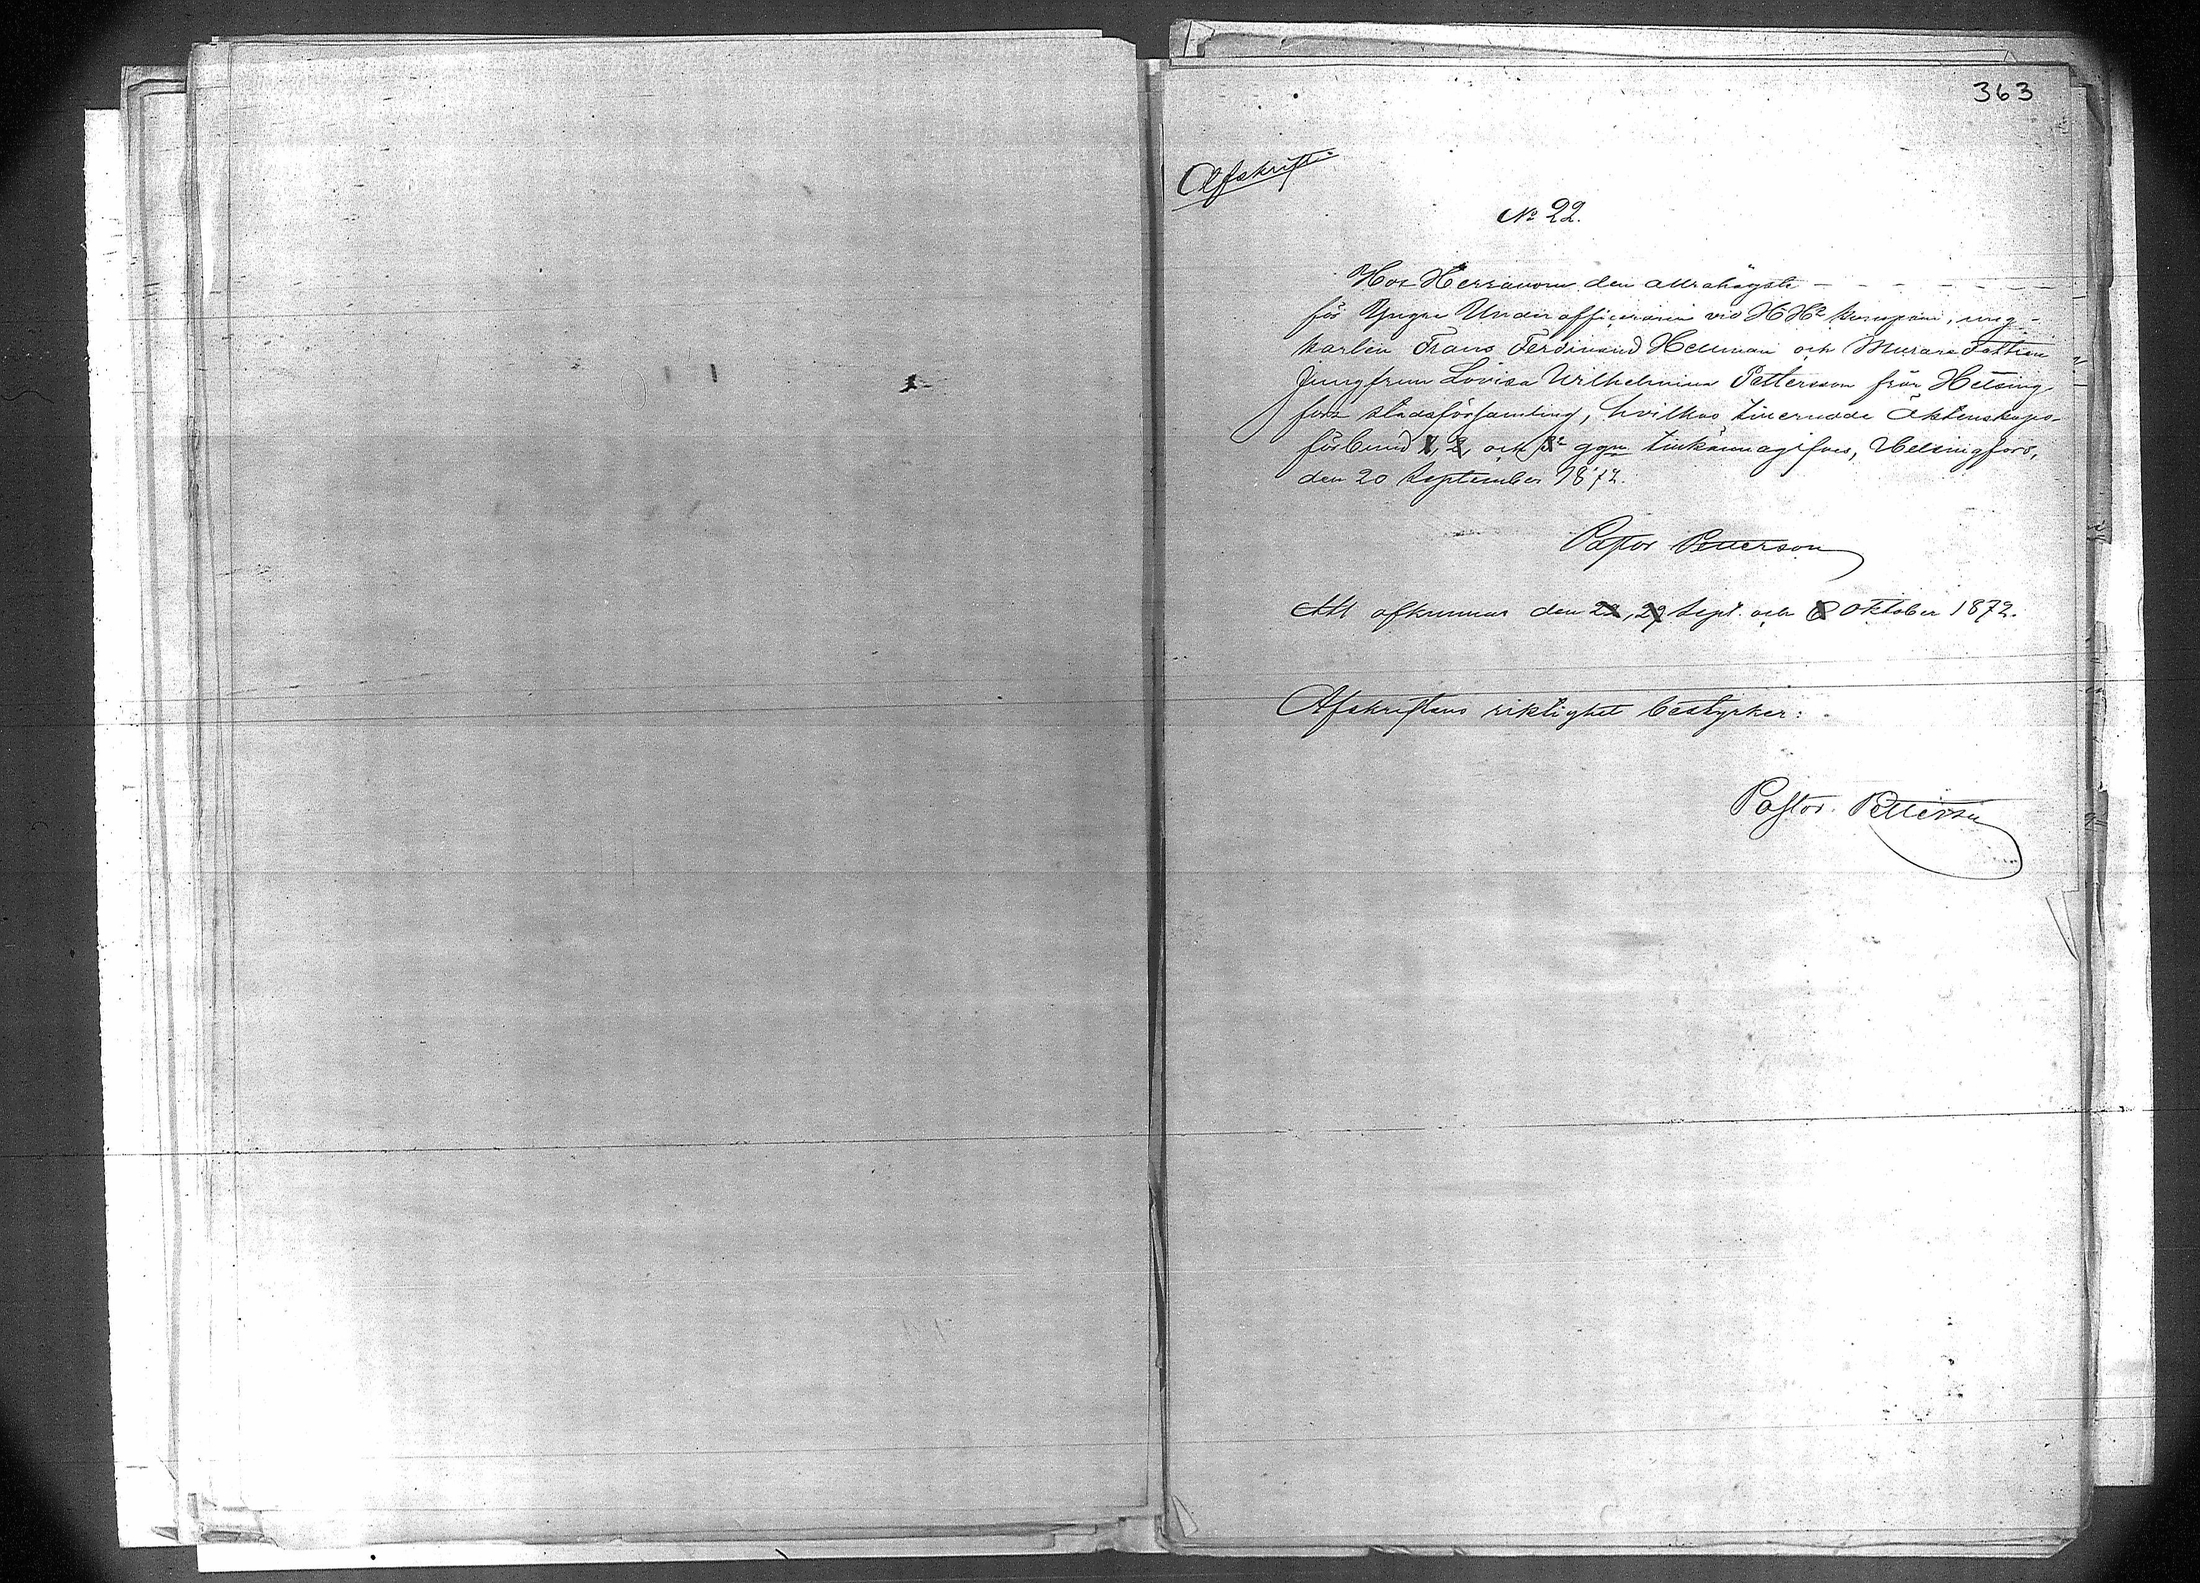 363
Afskrift.
No 22.
Hos Herranom den allrahögste - - - - - -
för Yngre Underofficeraren vid kompani, ung-
karlen Frans Ferdinand Hellman och Murare Dottren
Jungfrun Lovisa Wilhelmina Pettersson från Helsing
fors stadsförsamling, hvilkas timerade Äktenskaps-
förbund 1, 2, och 3e ggn tillkännagifves, Helsingfors,
den 20 September 1872.
Pastor Petterson
Att afkunnas den 22, 29 Sept. och 6 Oktober 1872.
Afskriftens riktighet bestyrker:
Pastor Petterson